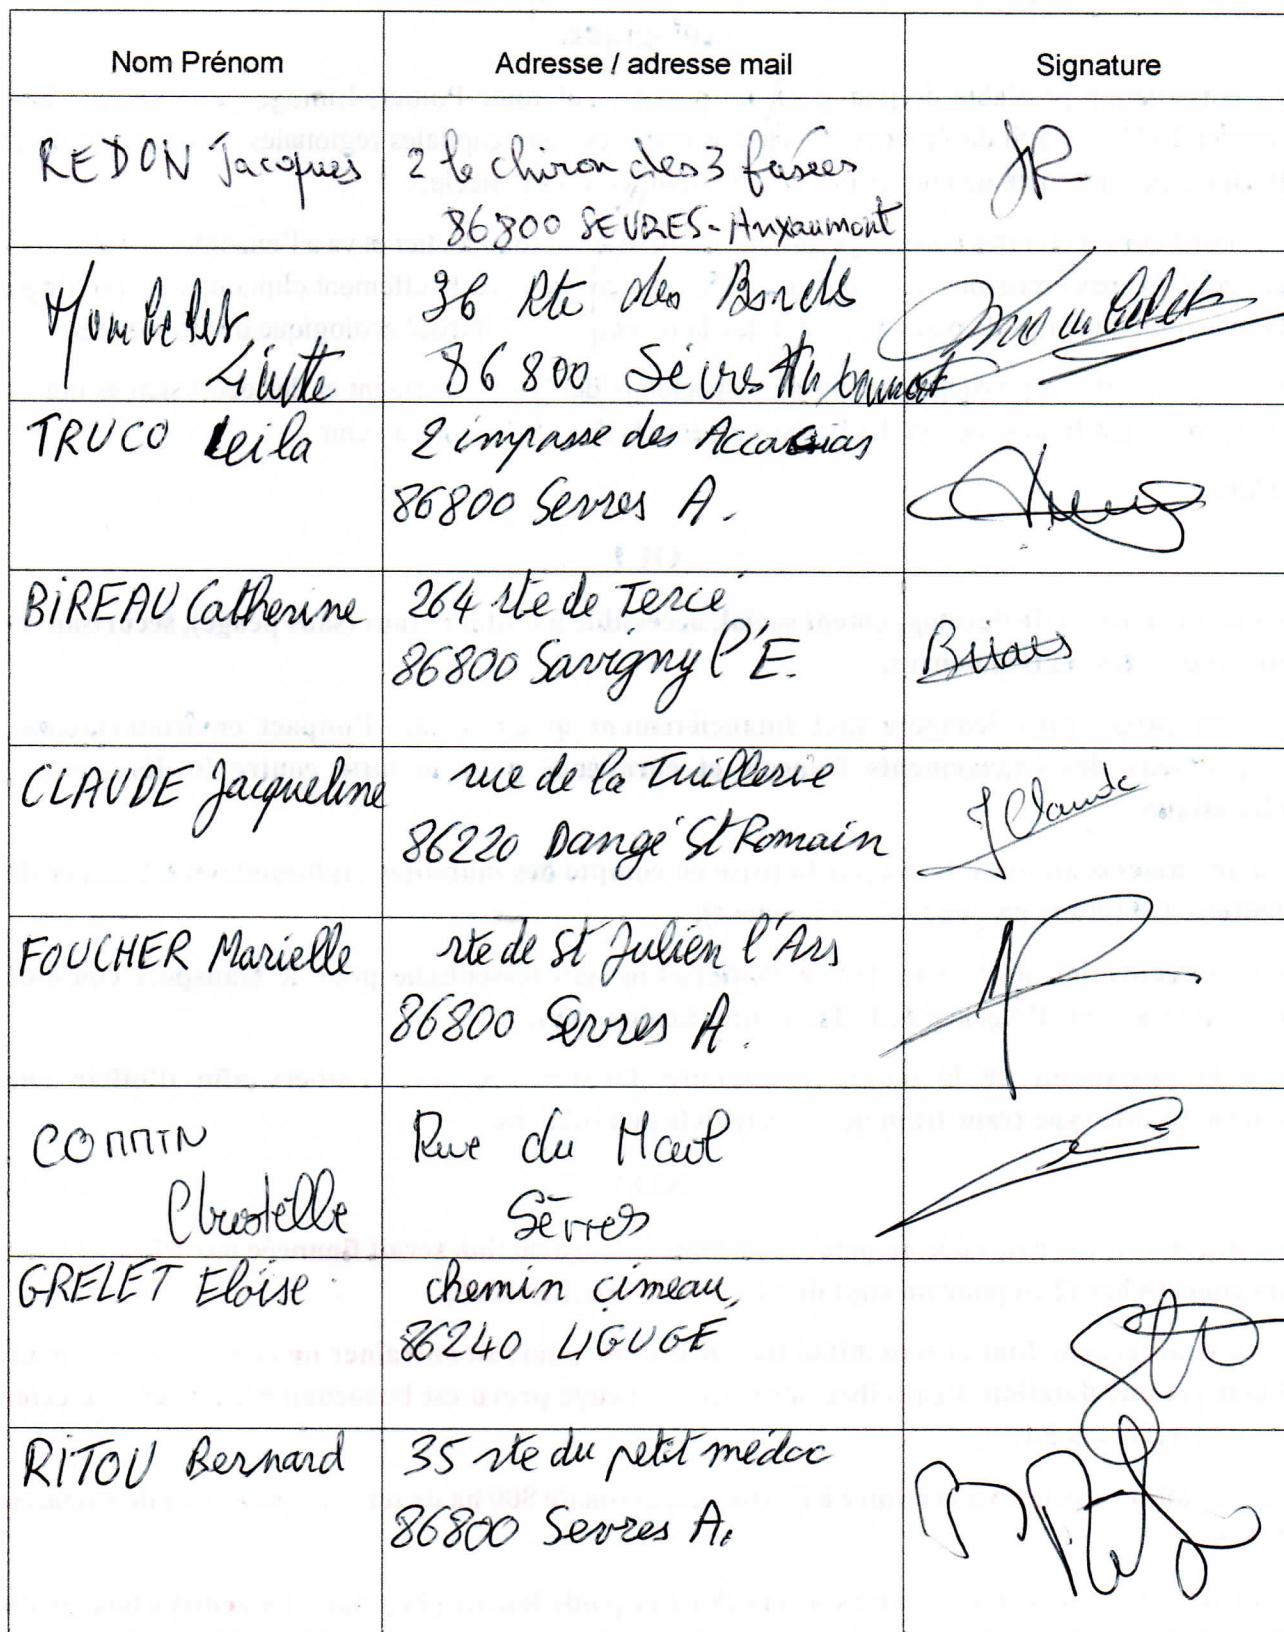 Nom Prénom Adresse / adresse mail Signature
REDON Jacques 2 le chiron des 3 fusées
86800 SEVRES-Anxaumont
36 Rte des
86800 Sèvres
TRUCO Leila 2 impasse des Accacias
86800 Sevres A.
BIREAU Catherine 264 rte de Tercé
86800 Savigny l'E.
CLAUDE Jacqueline rue de la Tuillerie J Claude
86220 Dangé St Romain
FOUCHER Marielle rte de St Julien l'Ars
86800 Sevres A.
Rue du Haut
Christelle Sèvres
GRELET Eloïse chemin cimeau,
86240 LIGUGÉ
RITOU Bernard 35 rte du petit médoc
86800 Sevres A.